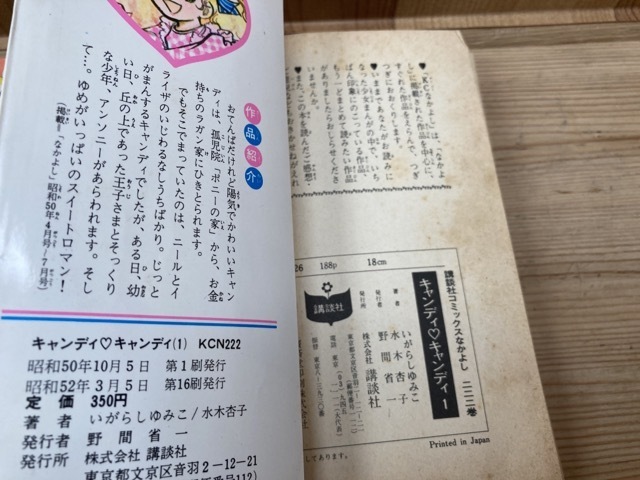 作品紹介
おてんばだけれど陽気でかわいいキャン
ディは、孤児院「ポニーの家」から、お金
持ちのラガン家にひきとられます。
でもそこでまっていたのは、ニールとイ
ライザのいじわるなしうちばかり。じっと
がまんするキャンディでしたが、ある日、幼
い日、丘の上であった王子さまとそっくり
な少年、アンソニーがあらわれます。そし
て…。ゆめがいっぱいのスイートロマン！
（掲載＝「なかよし」昭和50年4月号〜7月号）
キャンディ♡キャンディ(1) KCN222
昭和50年10月5日 第1刷発行
昭和52年3月5日 第16刷発行
定価 350円
著者 いがらしゆみこ／水木杏子
発行者 野間省一
発行所 株式会社 講談社
東京都文京区音羽2-12-21
♥「KCなかよし」は、なかよ
しに掲載された作品を中心に、
すぐれた作品をえらんで、つぎ
つぎにおおくりします。
♥いままでになかよしでいち
もう一どまとめて読みたい作品
ありましたらおしらせくださ
いませんか。
♥また、この本を読んだご感想・
26 188p 18cm
講談社コミックスなかよし 二二二巻
キャンディ♡キャンディ 1
著者 いがらしゆみこ
水木杏子
発行者 野間省一
発行所 株式会社 講談社
講談社
Printed in Japan